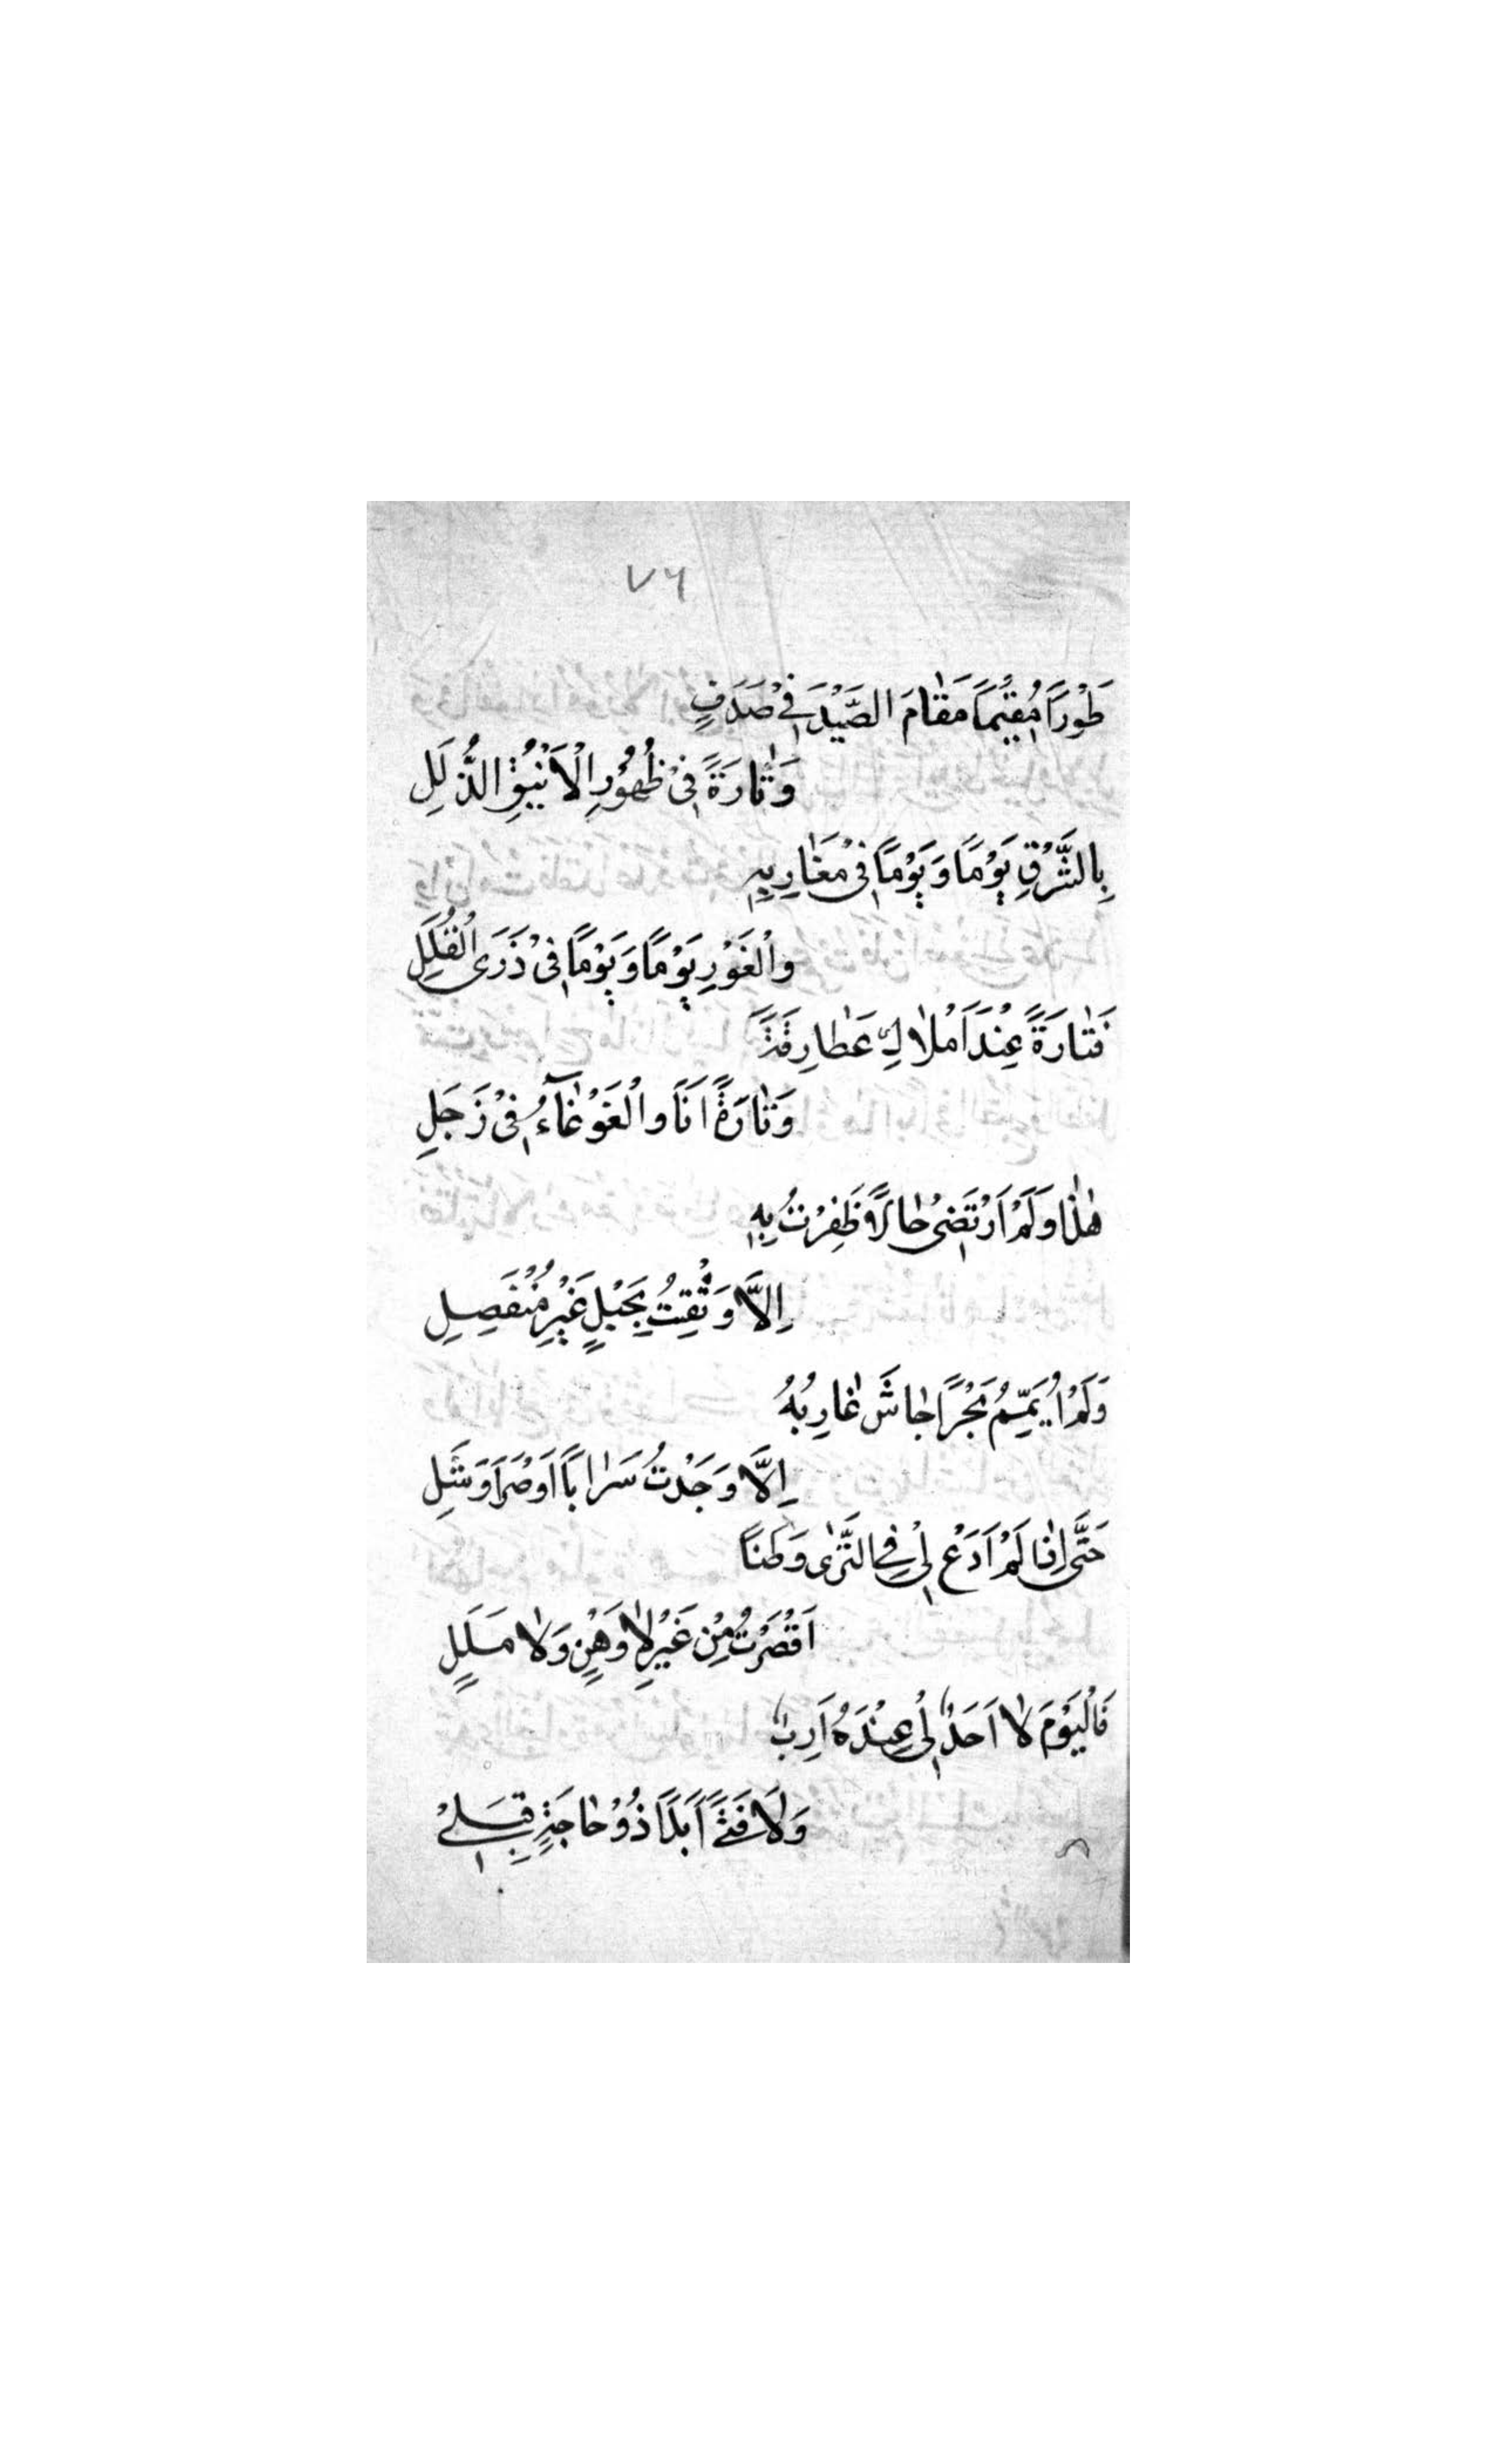 ٧٦
طَوْرًا مُقِيْمًا مَقَامَ الصَّيْدَ فِيْ صَدَفٍ
وَتَارَةً فِيْ ظُهُوْرِ الْاَنْيُقِ الذُّلَلِ
بِالشَّرْقِ يَوْمًا وَيَوْمًا فِيْ مَغَارِبِهِ
وَالْغَوْرِ يَوْمًا وَيَوْمًا فِيْ ذَرَى الْقُلَلِ
فَتَارَةً عِنْدَ اَمْلَاكٍ غَطَارِفَةً
وَتَارَةً اَنَا وَالْغَوْغَآءُ فِيْ زَجَلِ
هٰذَا وَلَمْ اَرْتَضِيْ حَالًا ظَفِرْتُ بِهِ
اِلَّا وَثِقْتُ بِحَبْلٍ غَيْرِ مُنْفَصِلِ
وَلَمْ اُيَمِّمُ بَحْرًا جَاشَ غَارِبُهُ
اِلَّا وَجَدْتُ سَرَابًا اَوْ صَرَا وَشَلِ
حَتَّى اِذَا لَمْ اَدَعْ لِيْ فِي الثَّرٰى وَطَنًا
اَقْصَرْتُ مِنْ غَيْرِ لَا وَهْنٍ وَلَا مَلَلٍ
فَالْيَوْمَ لَا اَحَدٌ لِيْ عِنْدَهُ اَرِبٌ
وَلَا فَتًى اَبَدًا ذُوْ حَاجَةٍ قِبَلِيْ